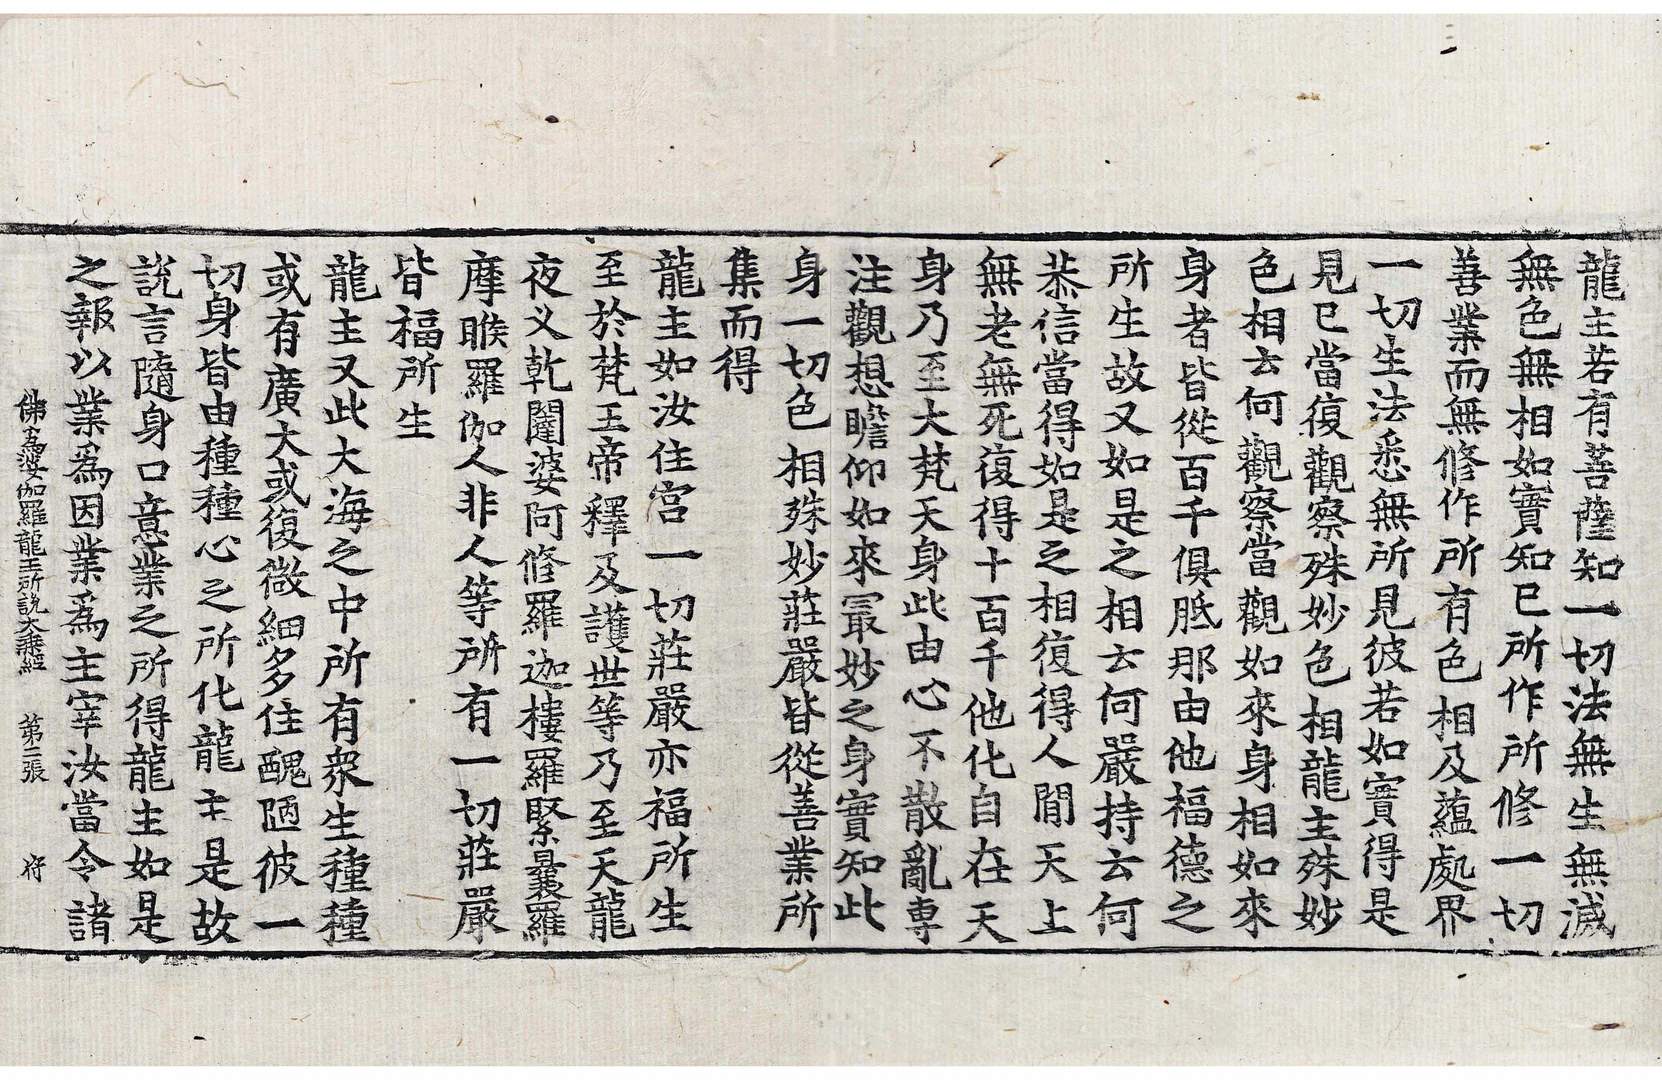 龍主若有菩薩知一切法無生無滅
無色無相如實知已所作所修一切
善業而無修作所有色相及蘊處界
一切生法悉無所見彼若如實得是
見已當復觀察殊妙色相龍主殊妙
色相云何觀察當觀如來身相如來
身者皆從百千俱胝那由他福德之
所生故又如是之相云何嚴持云何
恭信當得如是之相復得人間天上
無老無死復得十百千他化自在天
身乃至大梵天身此由心不散亂專
注觀想瞻仰如來冣妙之身實知此
身一切色相殊妙莊嚴皆從善業所
集而得
龍主如汝住宮一切莊嚴亦福所生
至於梵王帝釋及護世等乃至天龍
夜叉乾闥婆阿修羅迦樓羅緊曩羅
摩睺羅伽人非人等所有一切莊嚴
皆福所生
龍主又此大海之中所有衆生種種
或有廣大或復微細多住醜陋彼一
切身皆由種種心之所化龍主是故
說言隨身口意業之所得龍主如是
之報以業爲因業爲主宰汝當令諸
佛爲娑伽羅龍王所說大乘經 第二張 府